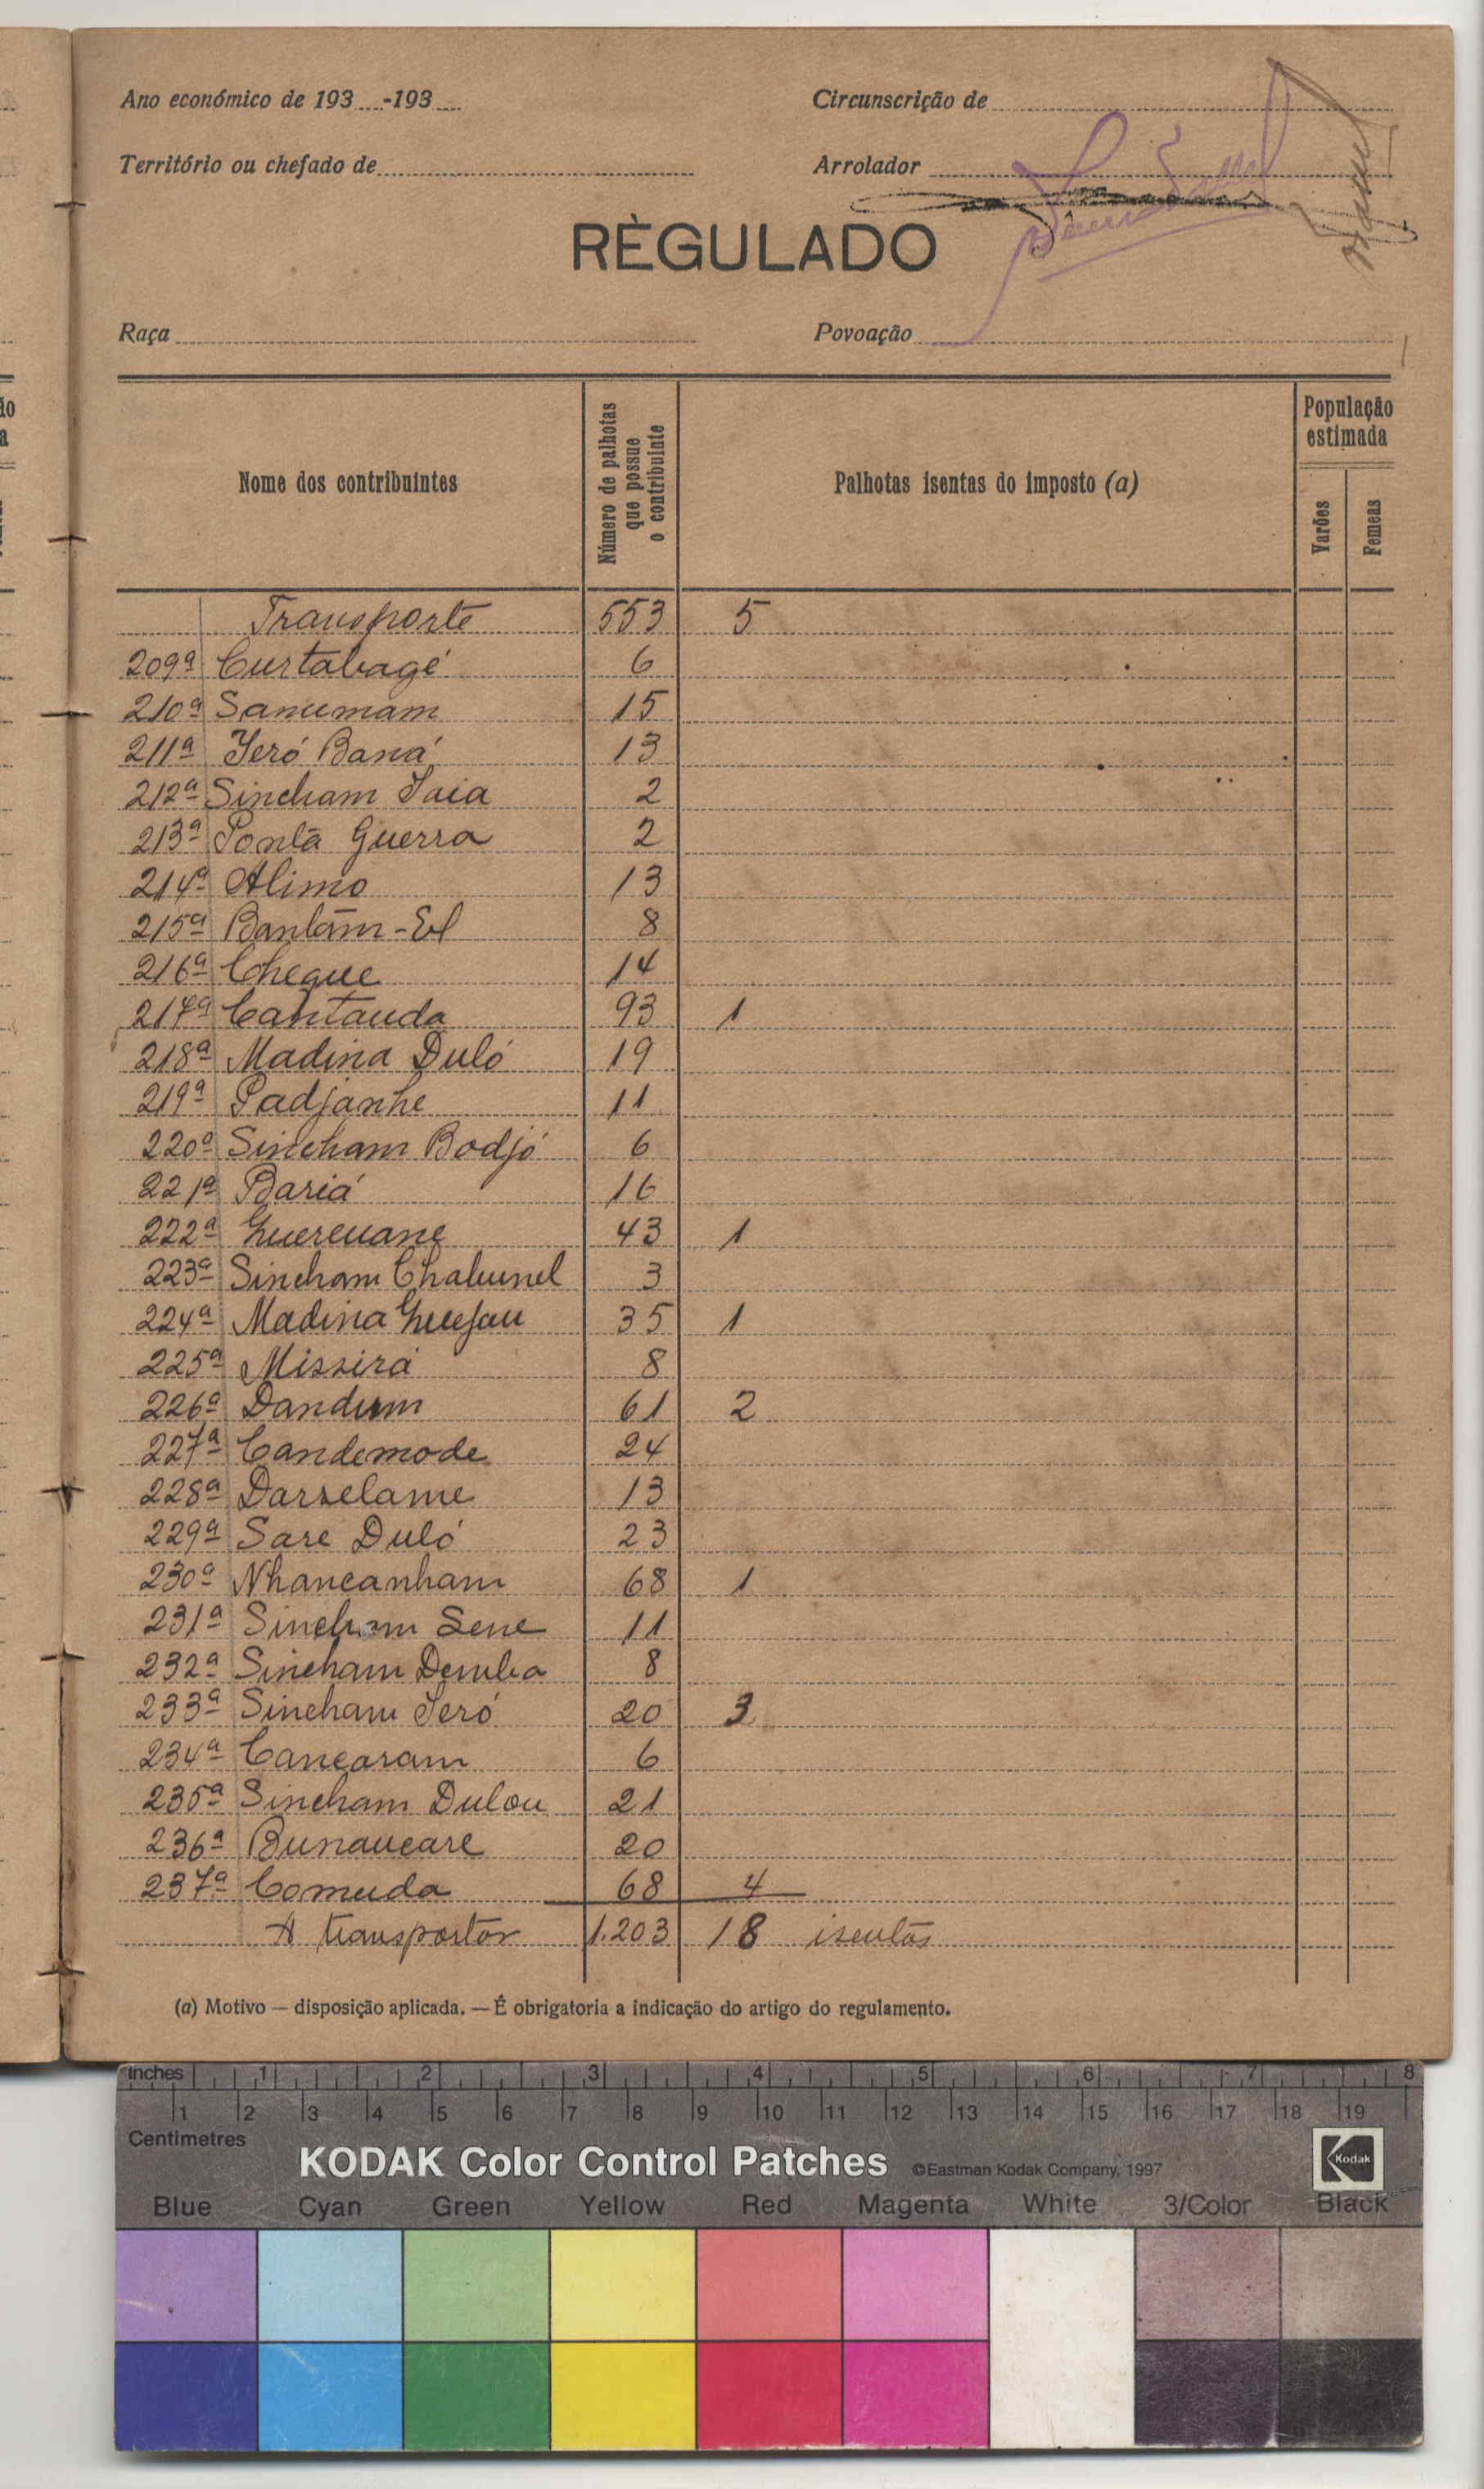 Ano económico de 193....-193....
Circunscrição de
Território ou chefado de
Arrolador
REGULADO
Raça
Povoação
Nome dos contribuintes
Número de palhotas que possue o contribuinte
Palhotas isentas do imposto (a)
População estimada
Varões
Femeas
Transporte 553 5
209ª Curtabagé 6
210ª Sanumam 15
211ª Jeró Baná 13
212ª Sincham Iaia 2
213ª Ponta Guerra 2
214ª Alimo 13
215ª Bantãm-El 8
216ª Cheque 14
217ª Cantauda 93 1
218ª Madina Duló 19
219ª Padjanhe 11
220ª Sincham Bodjó 6
221ª Bariá 16
222ª Guereuane 43 1
223ª Sincham 3
224ª Madina 35 1
225ª Missirá 8
226ª Dandum 61 2
227ª Candemode 24
228ª Darselame 13
229ª Sare Duló 23
230ª Nhancanham 68 1
231ª Sincham Sene 11
232ª Sincham Demba 8
233ª Sincham Jeró 20 3
234ª Cancaram 6
235ª Sincham Dulou 21
236ª Bunaucare 20
237ª Comuda 68 4
A transportar 1.203 18 isentas
(a) Motivo — disposição aplicada. — É obrigatoria a indicação do artigo do regulamento.
inches 1 2 3 4 5 6 7 8
1 2 3 4 5 6 7 8 9 10 11 12 13 14 15 16 17 18 19
Centimetres
KODAK Color Control Patches ©Eastman Kodak Company, 1997 Kodak
Blue Cyan Green Yellow Red Magenta White 3/Color Black